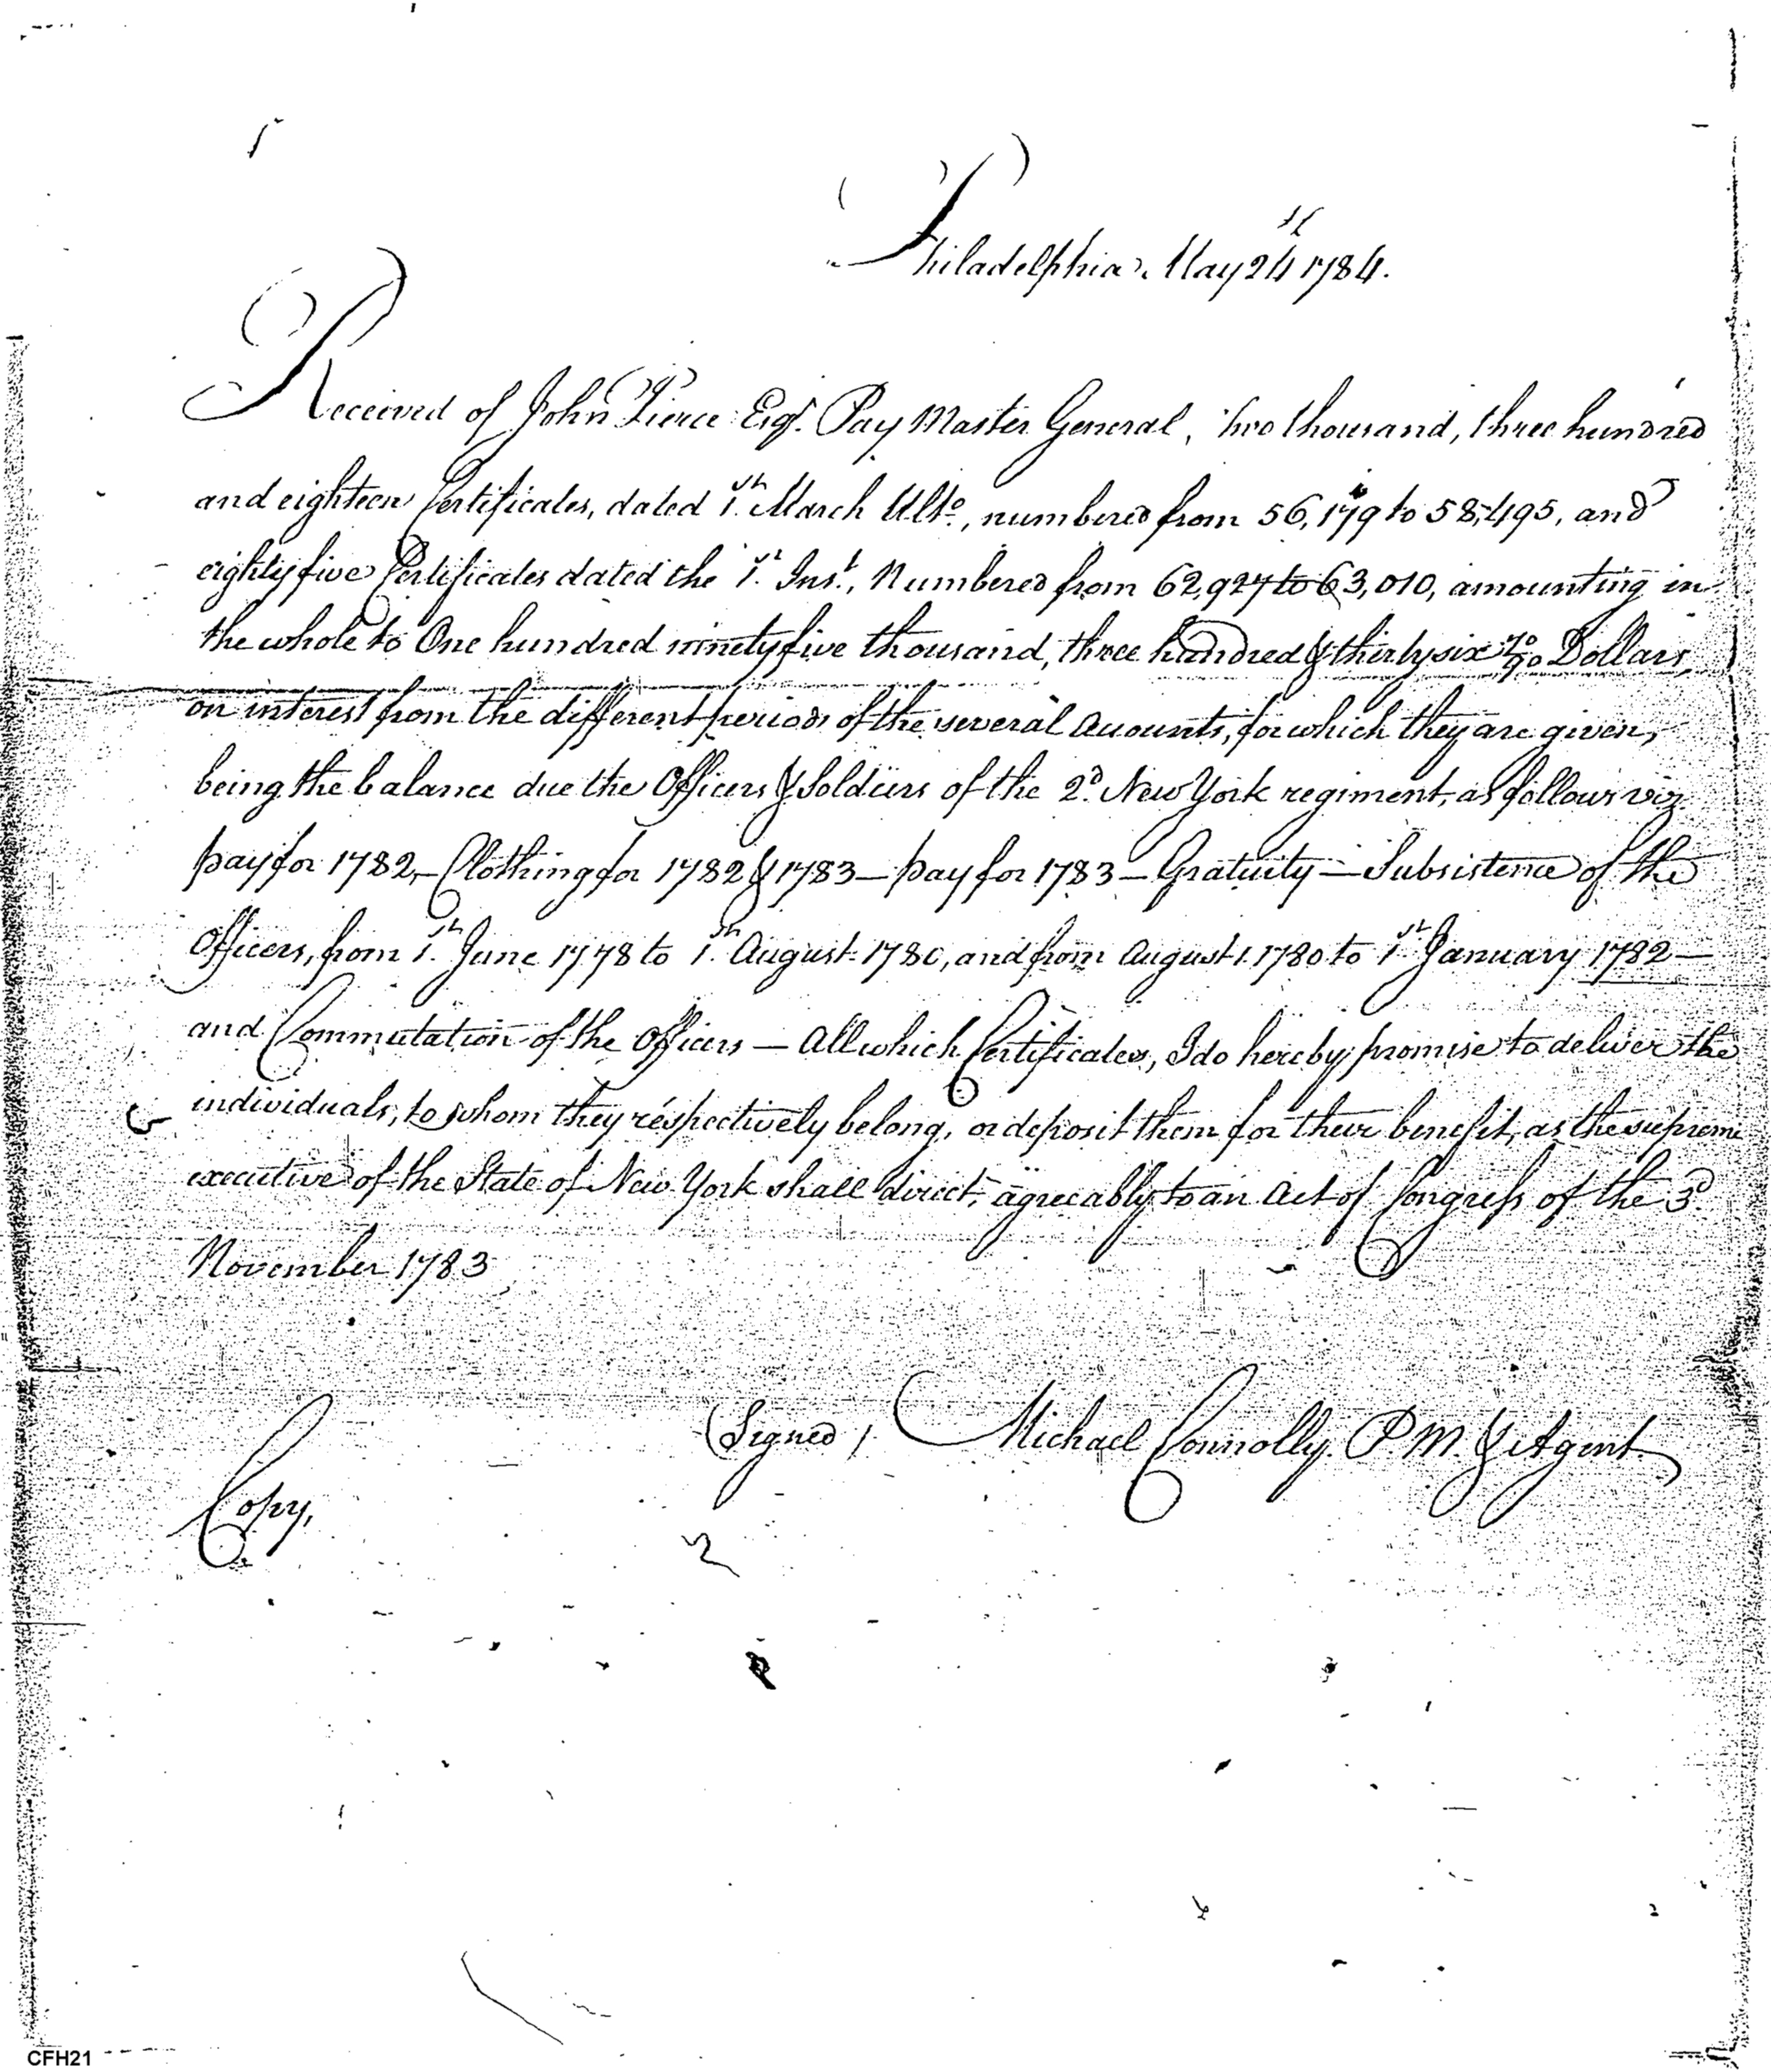 Philadelphia May 24th 1784.
Received of John Pierce Esqr. Pay Master General, two thousand, three hundred
and eighteen Certificates, dated 1st March Ulto., numbered from 56,179 to 58,495, and
eighty five Certificates dated the 1st Inst., Numbered from 62,927 to 63,010, amounting in
the whole to One hundred ninety five thousand, three hundred & thirty six 70/90 Dollars,
on interest from the different periods of the several accounts, for which they are given,
being the balance due the Officers & Soldiers of the 2d. New York regiment, as follows viz
pay for 1782, – Clothing for 1782 & 1783 – pay for 1783 – Gratuity – Subsistence of the
Officers, from 1st June 1778 to 1st August 1780, and from August 1. 1780 to 1st January 1782 –
and Commutation of the Officers – All which Certificates, I do hereby promise to deliver the
individuals, to whom they respectively belong, or deposit them for their benefit, as the supreme
executive of the State of New York shall direct, agreeably to an Act of Congress of the 3d.
November 1783
(Signed) Michael Connolly P.M. & Agent
Copy,
CFH21